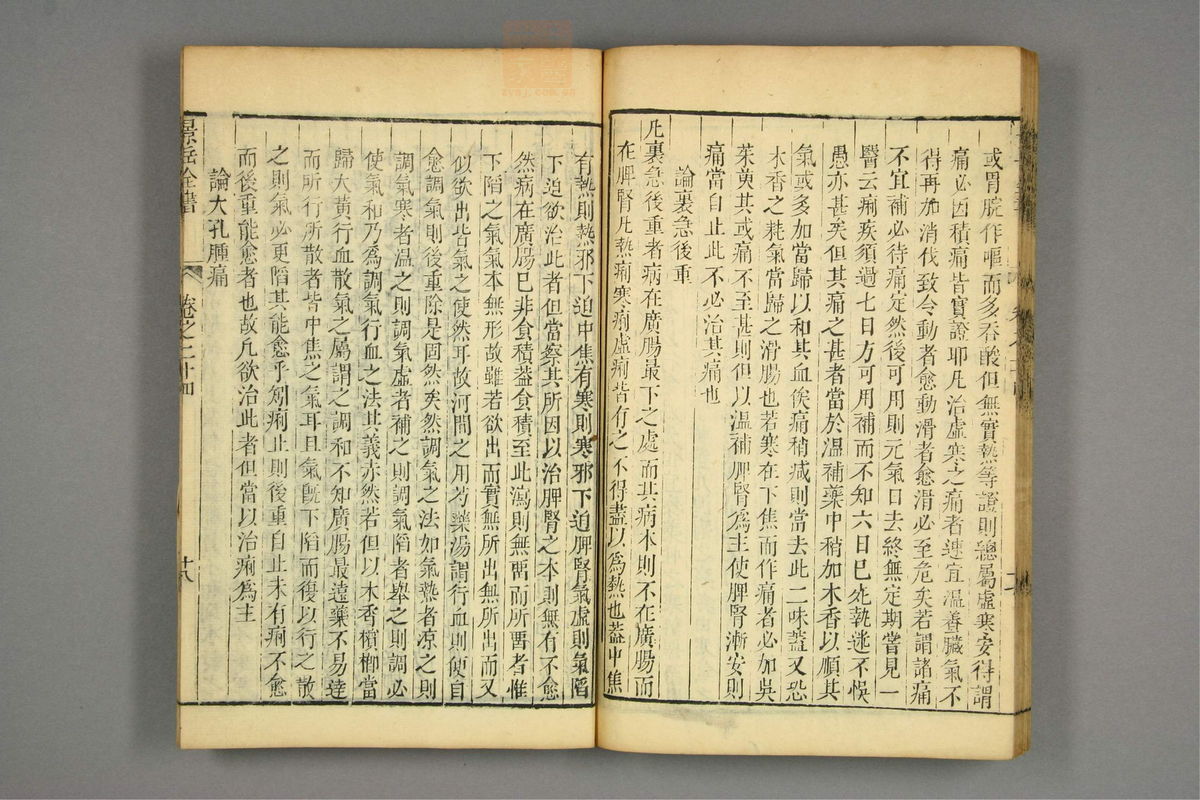 或胃脘作嘔而多吞酸但無實熱等證則總屬虛寒安得謂
痛必因積痛皆實證耶凡治虛寒之痛者速宜溫養臟氣不
得再加消伐致令動者愈動滑者愈滑必至危矣若謂諸痛
不宜補必待痛定然後可用則元氣日去終無定期嘗見一
醫云痢疾須過七日方可用補而不知六日已死執迷不悞
愚亦甚矣但其痛之甚者當於溫補藥中稍加木香以順其
氣或多加當歸以和其血俟痛稍減則當去此二味蓋又恐
木香之耗氣當歸之滑腸也若寒在下焦而作痛者必加吳
茱萸其或痛不至甚則但以溫補脾腎爲主使脾腎漸安則
痛當自止此不必治其痛也
論裏急後重
凡裏急後重者病在廣腸最下之處而其病本則不在廣腸而
在脾腎凡熱痢寒痢虛痢皆有之不得盡以爲熱也蓋中焦
有熱則熱邪下迫中焦有寒則寒邪下迫脾腎氣虛則氣陷
下迫欲治此者但當察其所因以治脾腎之本則無有不愈
然病在廣腸已非食積蓋食積至此瀉則無畱而所畱者惟
下陷之氣氣本無形故雖若欲出而實無所出無所出而又
似欲出皆氣之使然耳故河間之用芍藥湯謂行血則便自
愈調氣則後重除是固然矣然調氣之法如氣熱者凉之則
調氣寒者溫之則調氣虛者補之則調氣陷者舉之則調必
使氣和乃爲調氣行血之法其義亦然若但以木香檳榔當
歸大黃行血散氣之屬謂之調和不知廣腸最遠藥不易達
而所行所散者皆中焦之氣耳且氣既下陷而復以行之散
之則氣必更陷其能愈乎矧痢止則後重自止未有痢不愈
而後重能愈者也故凡欲治此者但當以治痢爲主
論大孔腫痛
景岳全書
卷之二十四
十八